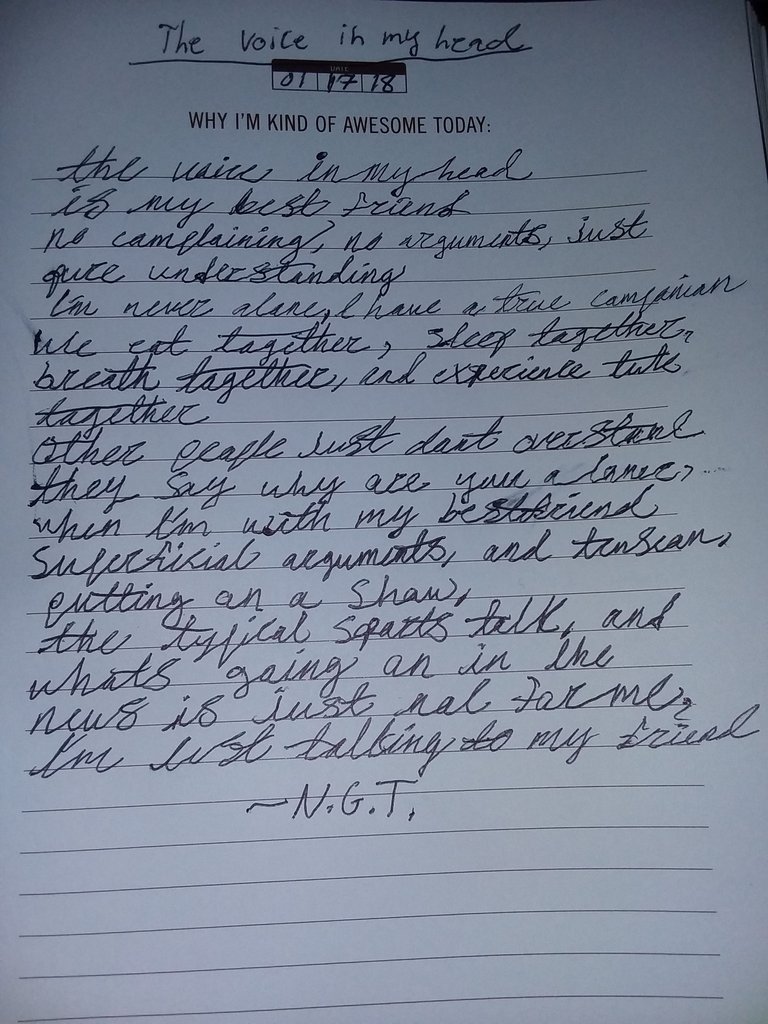 The voice in my head
DATE
01 17 18
WHY I'M KIND OF AWESOME TODAY:
the voice in my head
is my best friend
no complaining, no arguments, just
pure understanding
I'm never alone, I have a true companion
We eat together, sleep together,
breath together, and experience
together
Other people just dont overstand
they say why are you a loner,
when I'm with my bestfriend
Superficial arguments, and tension,
putting on a show,
the typical sports talk, and
whats going on in the
news is just not for me,
I'm just talking to my friend
~N.G.T.